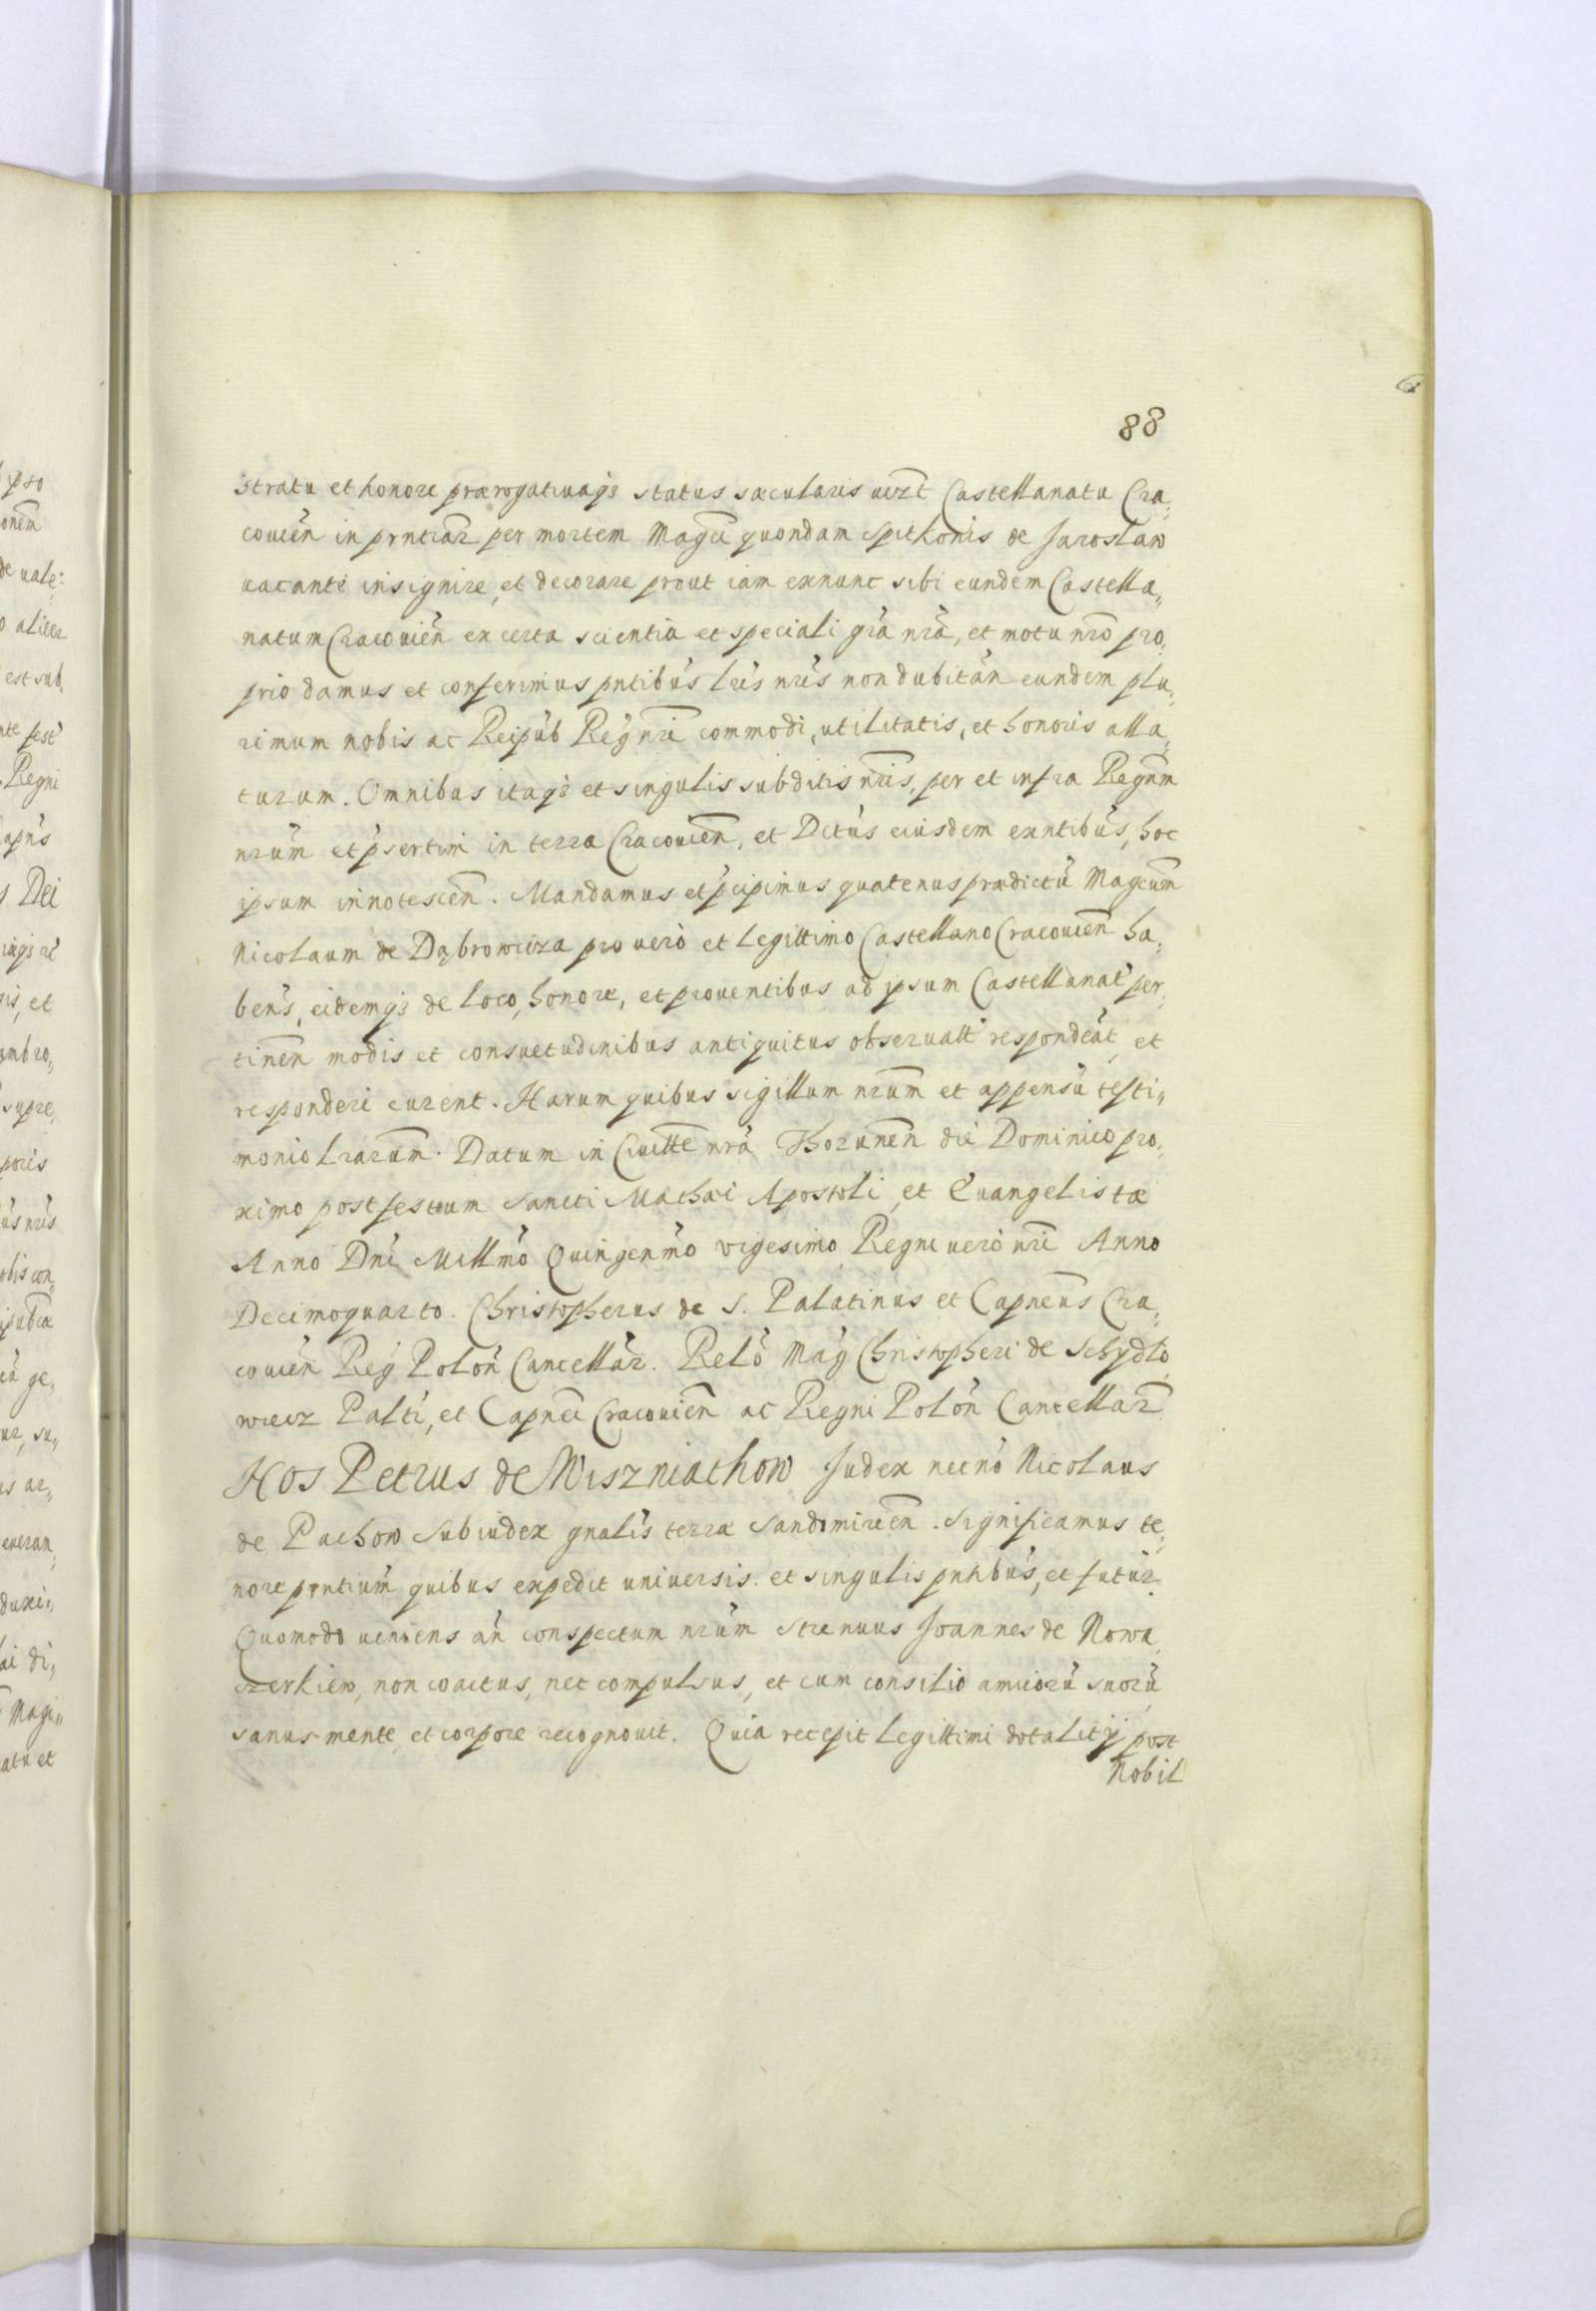 88
stratu et honore prærogativaqȝ status sæcularis uizt Castellanatu Cra„
couien̄ in prntiar̄ per mortem Magci quondam Spithonis de Jaroslaw
uacanti insignire, et decorare prout iam exnunc sibi eundem Castella„
natum Cracouien̄ ex certa scientia et speciali gra nra, et motu nro pro„
prio damus et conferimus pntibus lris nris non dubitan̄ eundem plu„
rimum nobis ac Reipub Reg nri commodi, utilitatis, et honoris alla„
turum. Omnibus itaqȝ et singulis subditis nris, per et infra Regnm
nrum et psertim in terra Cracouien̄, et Dctus eiusdem exntibus, hoc
ipsum innotescen̄. Mandamus et pcipimus quatenus prædictu Magcum
Nicolaum de Dąbrowicza pro uero et legittimo Castellano Cracouien̄ ha„
bens, eidemqȝ de loco, honore, et prouentibus ad ipsum Castellanat per„
tinen̄ modis et consuetudinibus antiquitus obseruatt respondeat, et
responderi curent. Harum quibus sigillum nrum et appensu testi„
monio lrarum. Datum in Ciuitte nra Thorunen̄ die Dominico pro„
ximo post festum Sancti Mathæi Apostoli, et Euangelistæ
Anno Dni Millmo Quingenmo vigesimo, Regni uero nri Anno
Decimoquarto. Christopherus de S. Palatinus et Capneus Cra„
couien̄ Reg Polon̄ Cancellar̄. Relo Mag Christopheri de Schydlo„
wiecz Palti, et Capnei Cracouien̄ ac Regni Polon̄ Cancellar̄
Nos Petrus de Wiszniathow Judex necno Nicolaus
de Pachow Subiudex gnalis terræ Sandomirien̄. Significamus te„
nore pntium quibus expedit universis et singulis pntibus, et futur̄.
Quomodo ueniens an̄ conspectum nrum strenuus Joannes de Nowa„
czerkiew, non coactus, nec compulsus, et cum consilio amicoru suoru,
sanus mente, et corpore recognouit. Quia recepit legittimi dotalitÿ post
Nobil